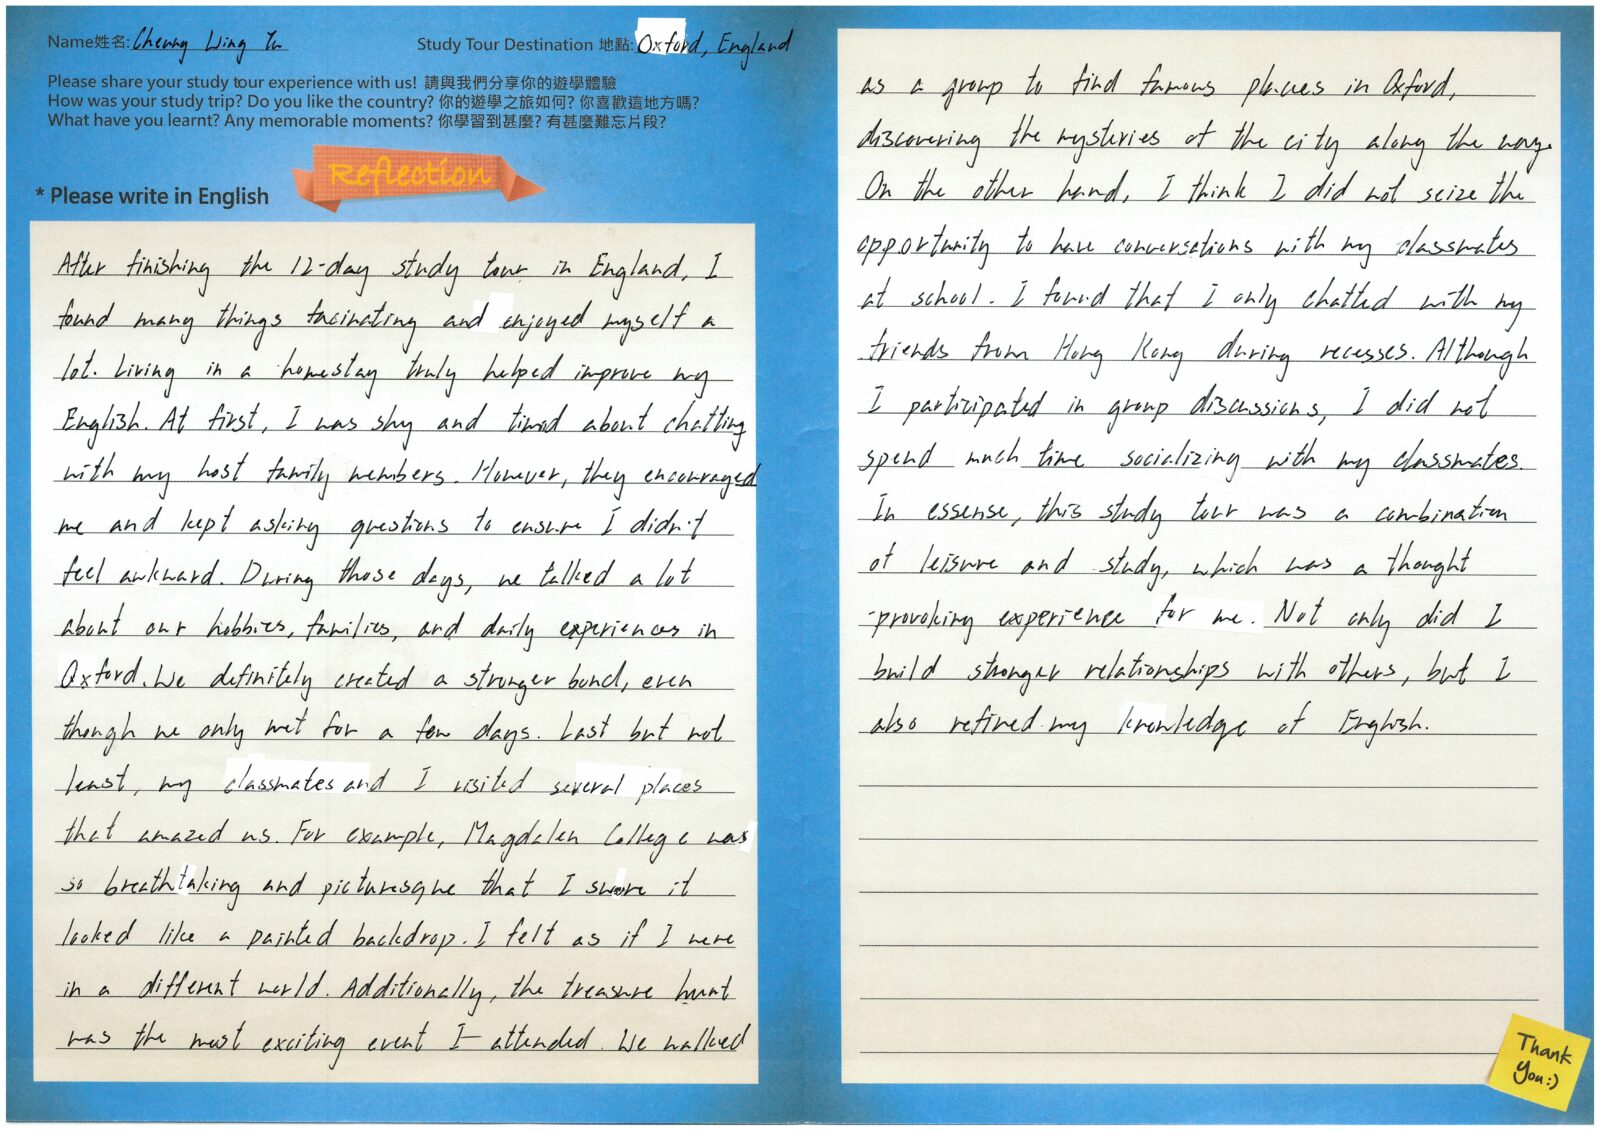 Name姓名: Cheung Wing Yu
Study Tour Destination 地點: Oxford, England
Please share your study tour experience with us! 請與我們分享你的遊學體驗
How was your study trip? Do you like the country? 你的遊學之旅如何? 你喜歡這地方嗎?
What have you learnt? Any memorable moments? 你學習到甚麼? 有甚麼難忘片段?
Reflection
* Please write in English
After finishing the 12-day study tour in England, I
found many things facinating and enjoyed myself a
lot. Living in a homestay truly helped improve my
English. At first, I was shy and timid about chatting
with my host family members. However, they encouraged
me and kept asking questions to ensure I didn't
feel awkward. During those days, we talked a lot
about our hobbies, families, and daily experiences in
Oxford. We definitely created a stronger bond, even
though we only met for a few days. Last but not
least, my classmates and I visited several places
that amazed us. For example, Magdalen College was
so breathtaking and picturesque that I swore it
looked like a painted backdrop. I felt as if I were
in a different world. Additionally, the treasure hunt
was the most exciting event I attended. We walked
as a group to find famous places in Oxford,
discovering the mysteries of the city along the way.
On the other hand, I think I did not seize the
opportunity to have conversations with my classmates
at school. I found that I only chatted with my
friends from Hong Kong during recesses. Although
I participated in group discussions, I did not
spend much time socializing with my classmates.
In essense, this study tour was a combination
of leisure and study, which was a thought
-provoking experience for me. Not only did I
build stronger relationships with others, but I
also refined my knowledge of English.
Thank
You:)